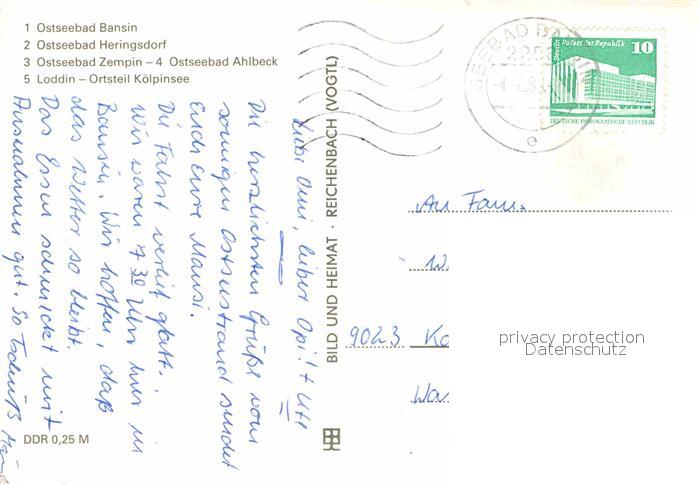 1 Ostseebad Bansin
2 Ostseebad Heringsdorf
3 Ostseebad Zempin – 4 Ostseebad Ahlbeck
5 Loddin – Ortsteil Kölpinsee
Liebe Omi, lieber Opi! + Ute
Die herzlichsten Grüße vom
sonnigen Ostseestrand sendet
Euch Eure Mausi.
Die Fahrt verlief glatt.
Wir waren 7 30 Uhr hier in
Bansin. Wir hoffen, daß
das Wetter so bleibt.
Das Essen schmeckt mit
Ausnahmen gut. So Tschüß
DDR 0,25 M
BILD UND HEIMAT · REICHENBACH (VOGTL)
SEEBAD BANSIN
2255
e
Berlin Palast der Republik
10
DEUTSCHE DEMOKRATISCHE REPUBLIK
An Fam.
W
9023 Ko
privacy protection
Datenschutz